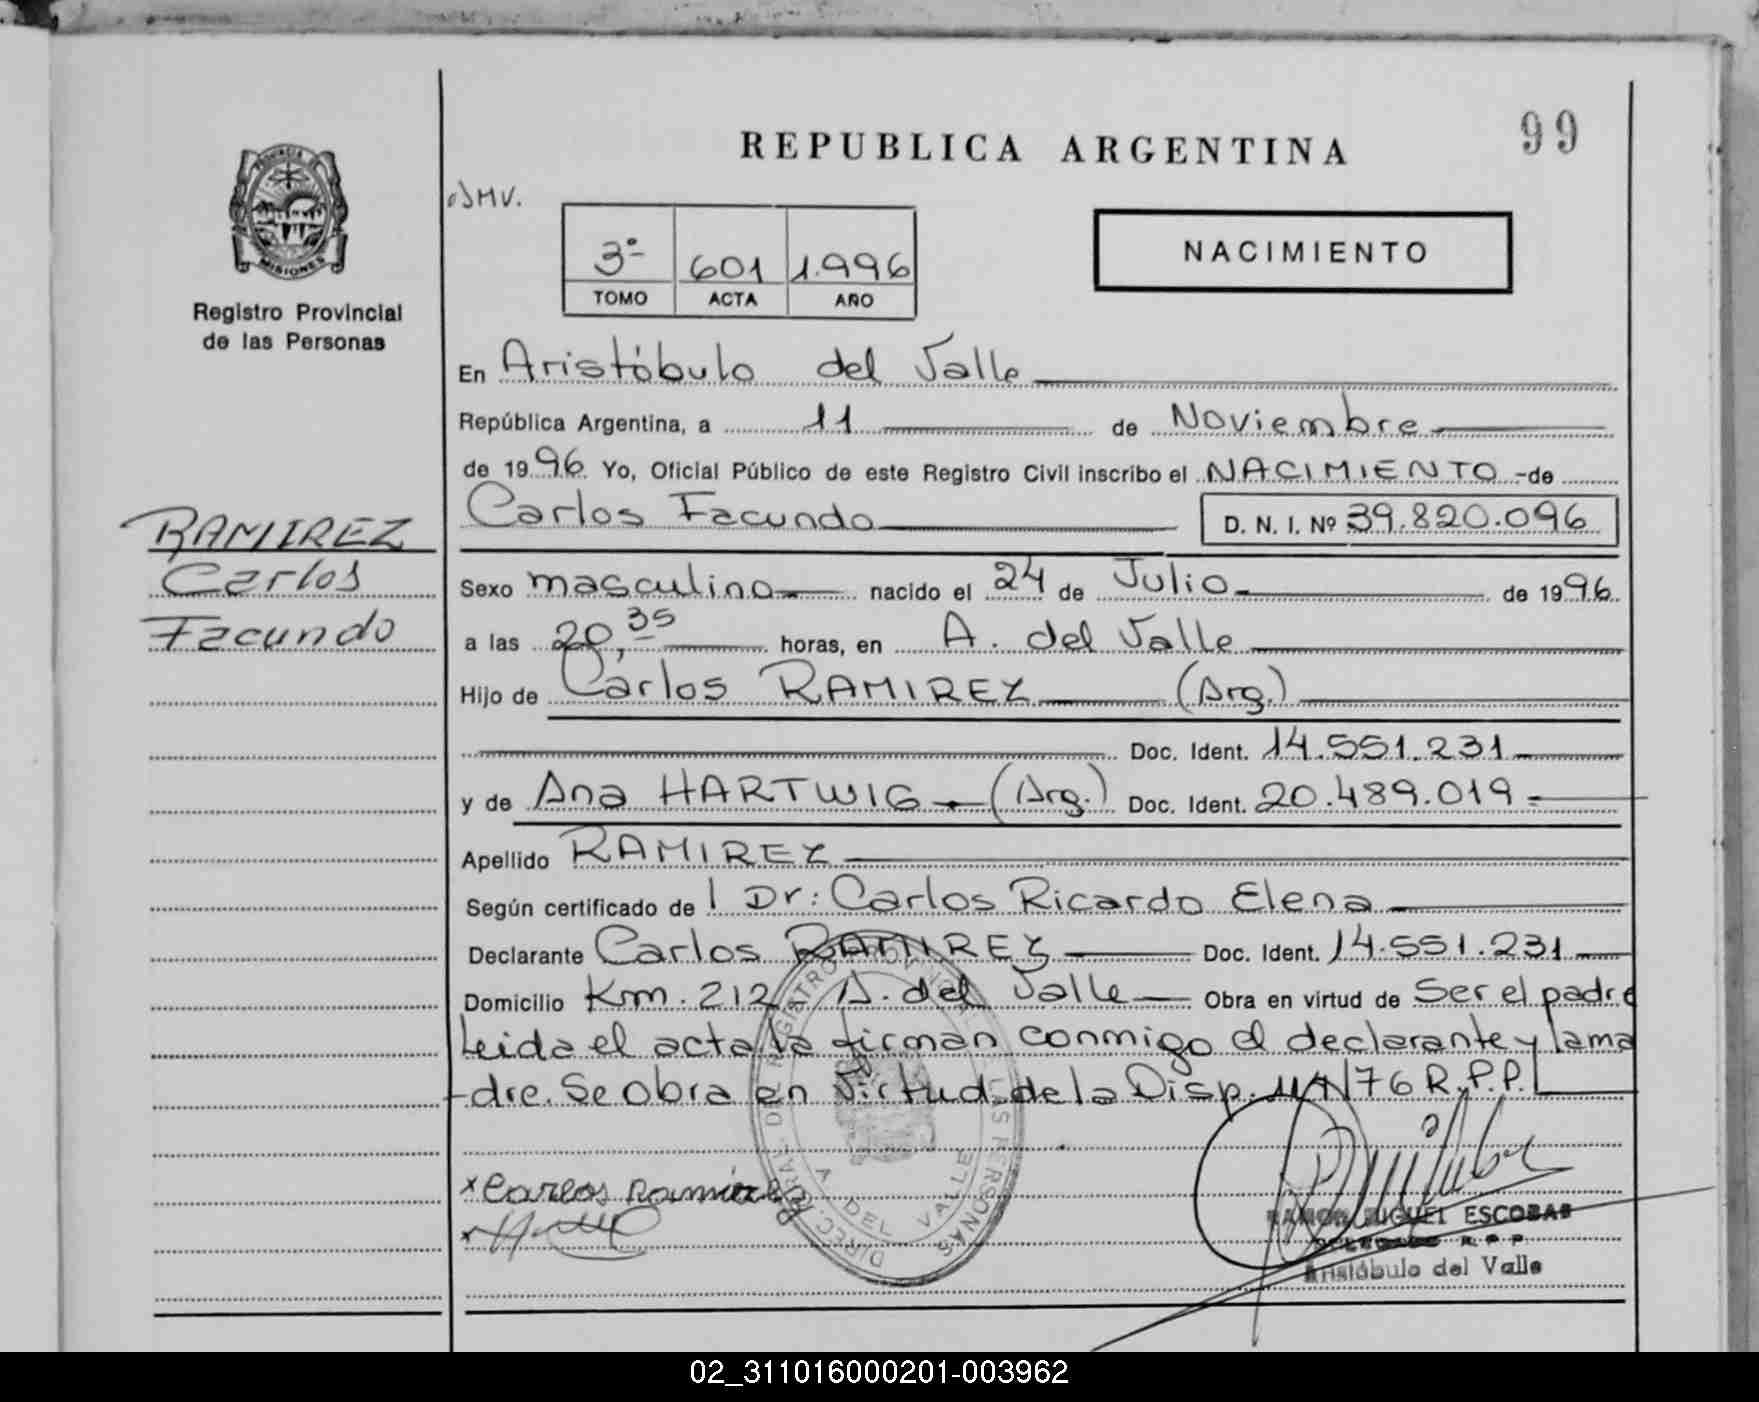 REPUBLICA ARGENTINA
99
PROVINCIA DE
MISIONES
Registro Provincial
de las Personas
3º 601 1.996
TOMO ACTA AÑO
NACIMIENTO
En Aristóbulo del Valle
República Argentina, a 11 de Noviembre
de 1996 Yo, Oficial Público de este Registro Civil inscribo el NACIMIENTO - de
Carlos Facundo D. N. I. Nº 39.820.096
RAMIREZ
Carlos
Facundo
Sexo masculino nacido el 24 de Julio de 1996
a las 20,35 horas, en A. del Valle
Hijo de Carlos RAMIREZ (Arg.)
Doc. Ident. 14.551.231
y de Ana HARTWIG (Arg.) Doc. Ident. 20.489.019
Apellido RAMIREZ
Según certificado de | Dr: Carlos Ricardo Elena
Declarante Carlos RAMIREZ Doc. Ident. 14.551.231
Domicilio Km. 212 - A. del Valle Obra en virtud de Ser el padre
Leida el acta la firman conmigo el declarante y la ma
-dre. Se obra en Virtud de la Disp. /76 R.P.P.
x Carlos Ramirez
DIREC. GRAL. DEL REGISTRO PROVINCIAL DE LAS PERSONAS
A DEL VALLE
RAMON MIGUEL ESCOBAR
DELEGADO R. P. P.
Aristóbulo del Valle
02_311016000201-003962